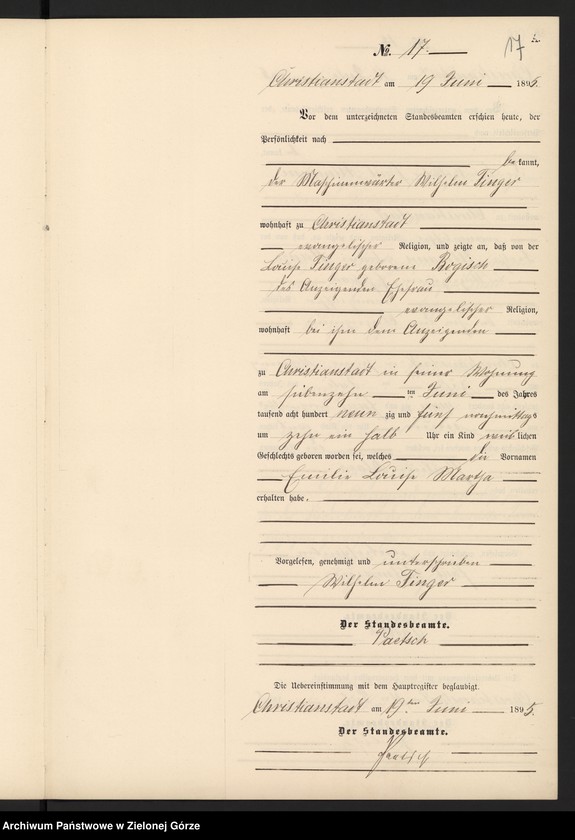 №. 17. 17
Christianstadt am 19 Juni 1895.
Vor dem unterzeichneten Standesbeamten erschien heute, der
Persönlichkeit nach
be kannt,
der Maschinenwärter Wilhelm Finger
wohnhaft zu Christianstadt
evangelischer Religion, und zeigte an, daß von der
Louise Finger geborene Bogisch
des Anzeigenden Ehefrau
evangelischer Religion,
wohnhaft bei ihm dem Anzeigenden
zu Christianstadt in seiner Wohnung
am siebenzehn ten Juni des Jahres
tausend acht hundert neun zig und fünf nachmittags
um zehn ein halb Uhr ein Kind weib lichen
Geschlechts geboren worden sei, welches die Vornamen
Emilie Louise Martha
erhalten habe.
Vorgelesen, genehmigt und unterschrieben
Wilhelm Finger
Der Standesbeamte.
Paetsch
Die Uebereinstimmung mit dem Hauptregister beglaubigt.
Christianstadt am 19ten Juni 1895.
Der Standesbeamte.
Paetsch
Archiwum Państwowe w Zielonej Górze